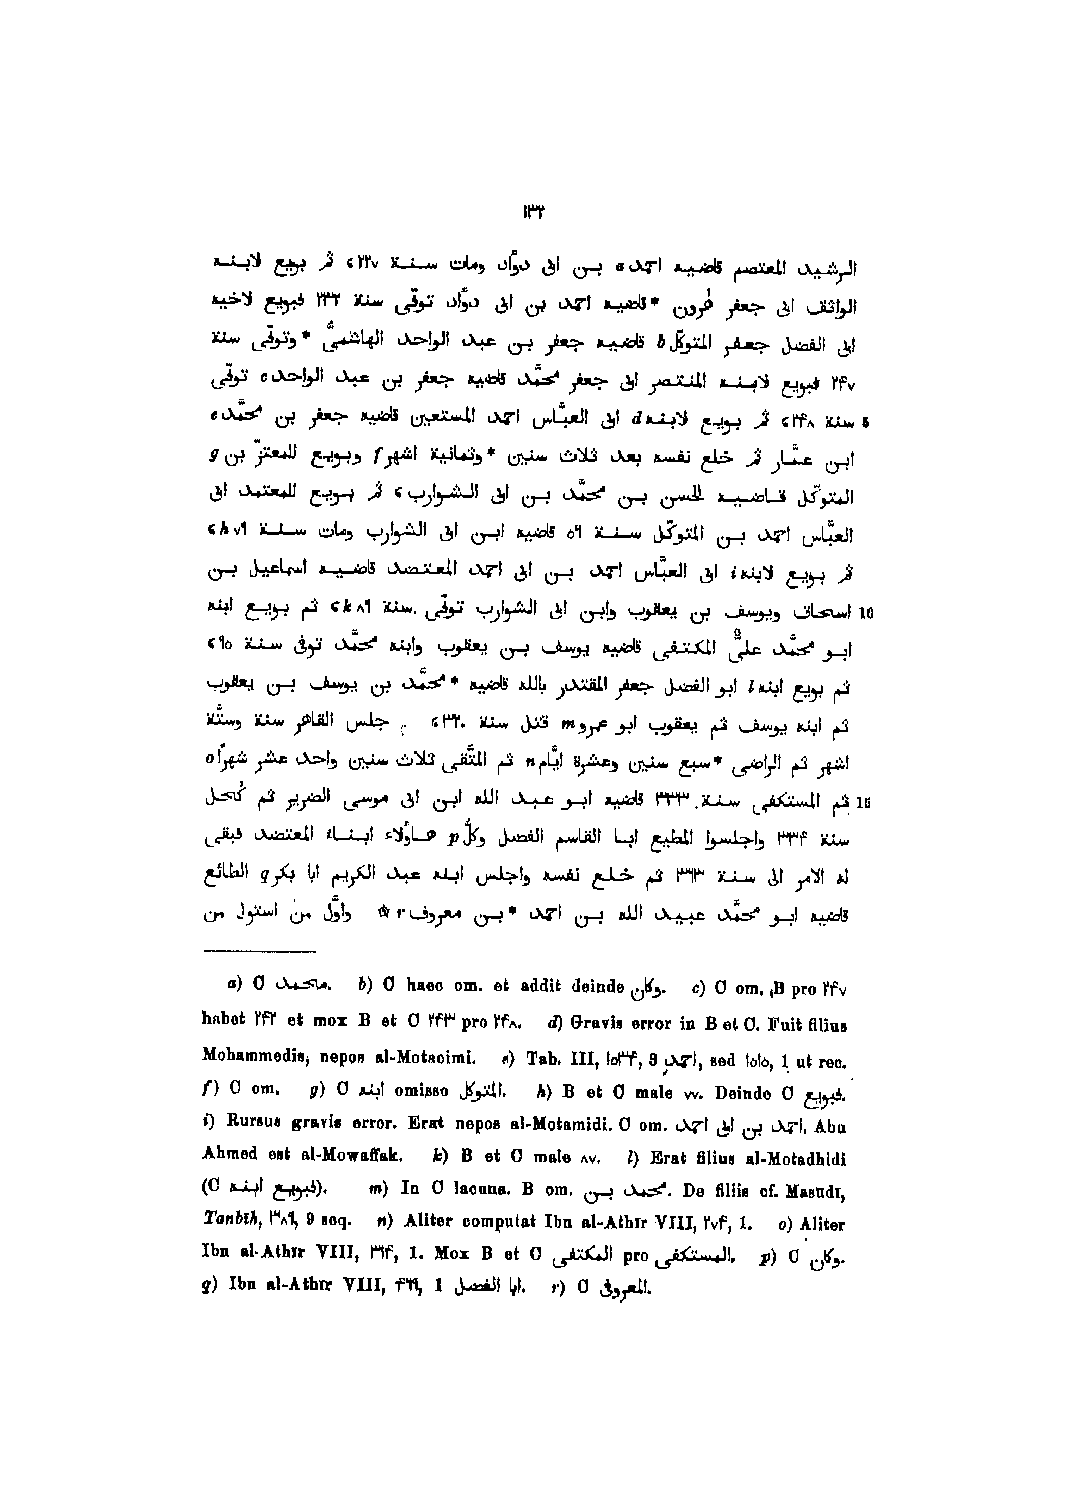 ١٣٢
الرشيد المعتصم قاضيه احمد a بن ابى دوَّاد ومات سنة ٢٢٧ c ثم بويع لابنه
الواثق ابى جعفر هُرون *قاضيه احمد بن ابى دوَّاد توفّى سنة ٢٣٢ فبويع لاخيه
ابى الفضل جعفر المتوكّل b قاضيه جعفر بن عبد الواحد الهاشمىّ *وتوفّى سنة
٢۴٧ فبويع لابنه المنتصر ابى جعفر محمَّد قاضيه جعفر بن عبد الواحد c توفّى
5 سنة ٢۴٨ c ثم بويع لابنه d ابى العبَّاس احمد المستعين قاضيه جعفر بن محمَّد e
ابن عمَّار ثم خلع نفسه بعد ثلاث سنين *وثمانية اشهر f وبويع للمعتزّ بن g
المتوكّل قاضيه الحسن بن محمَّد بن ابى الشوارب c ثم بويع للمعتمد ابى
العبَّاس احمد بن المتوكّل سنة ٥٦ قاضيه ابن ابى الشوارب ومات سنة ٧٩ h c
ثم بويع لابنه i ابى العبَّاس احمد بن ابى احمد المعتضد قاضيه اسماعيل بن
10 اسحاف ويوسف بن يعقوب وابن ابى الشوارب توفّى سنة ٨٩ k c ثم بويع ابنه
ابو محمَّد علىٌّ المكتفى قاضيه يوسف بن يعقوب وابنه محمَّد توفى سنة ٩٥ c
ثم بويع ابنه l ابو الفضل جعفر المقتدر بالله قاضيه *محمَّد بن يوسف بن يعقوب
ثم ابنه يوسف ثم يعقوب ابو عمرو m قتل سنة ٣٢٠ c جلس القاهر سنة وستَّة
اشهر ثم الراضى *سبع سنين وعشرة ايَّام n ثم المتَّقى ثلاث سنين واحد عشر شهراً o
15 ثم المستكفى سنة ٣٣٣ قاضيه ابو عبد الله ابن ابى موسى الضرير ثم كُحل
سنة ٣٣۴ واجلسوا المطيع ابا القاسم الفضل وكلُّ p هاولاء ابناء المعتضد فبقى
له الامر الى سنة ٣٦٣ ثم خلع نفسه واجلس ابنه عبد الكريم ابا بكر q الطائع
قاضيه ابو محمَّد عبيد الله بن احمد *بن معروف r ☆ واوَّل من استول من
a) C محمد. b) C haec om. et addit deinde وكان. c) C om. B pro ٢۴٧
habet ٢۴٢ et mox B et C ٢۴٣ pro ٢۴٨. d) Gravis error in B et C. Fuit filius
Mohammedis, nepos al-Motacimi. e) Tab. III, ١٥٣۴, 9 احمد, sed ١٥١٥, 1 ut rec.
f) C om. g) C ابنه omisso المتوكل. h) B et C male ٧٧. Deinde C فبويع.
i) Rursus gravis error. Erat nepos al-Motamidi. C om. احمد بن ابى احمد. Abu
Ahmed est al-Mowaffak. k) B et C male ٨٧. l) Erat filius al-Motadhidi
(C فبويع ابنه). m) In C lacuna. B om. محمد بن. De filiis cf. Masudi,
Tanbîh, ٣٨٩, 9 seq. n) Aliter computat Ibn al-Athîr VIII, ٢٧۴, 1. o) Aliter
Ibn al-Athîr VIII, ٣١۴, 1. Mox B et C المكتفى pro المستكفى. p) C وكان.
q) Ibn al-Athîr VIII, ۴٦٩, 1 ابا الفضل. r) C المعروف.